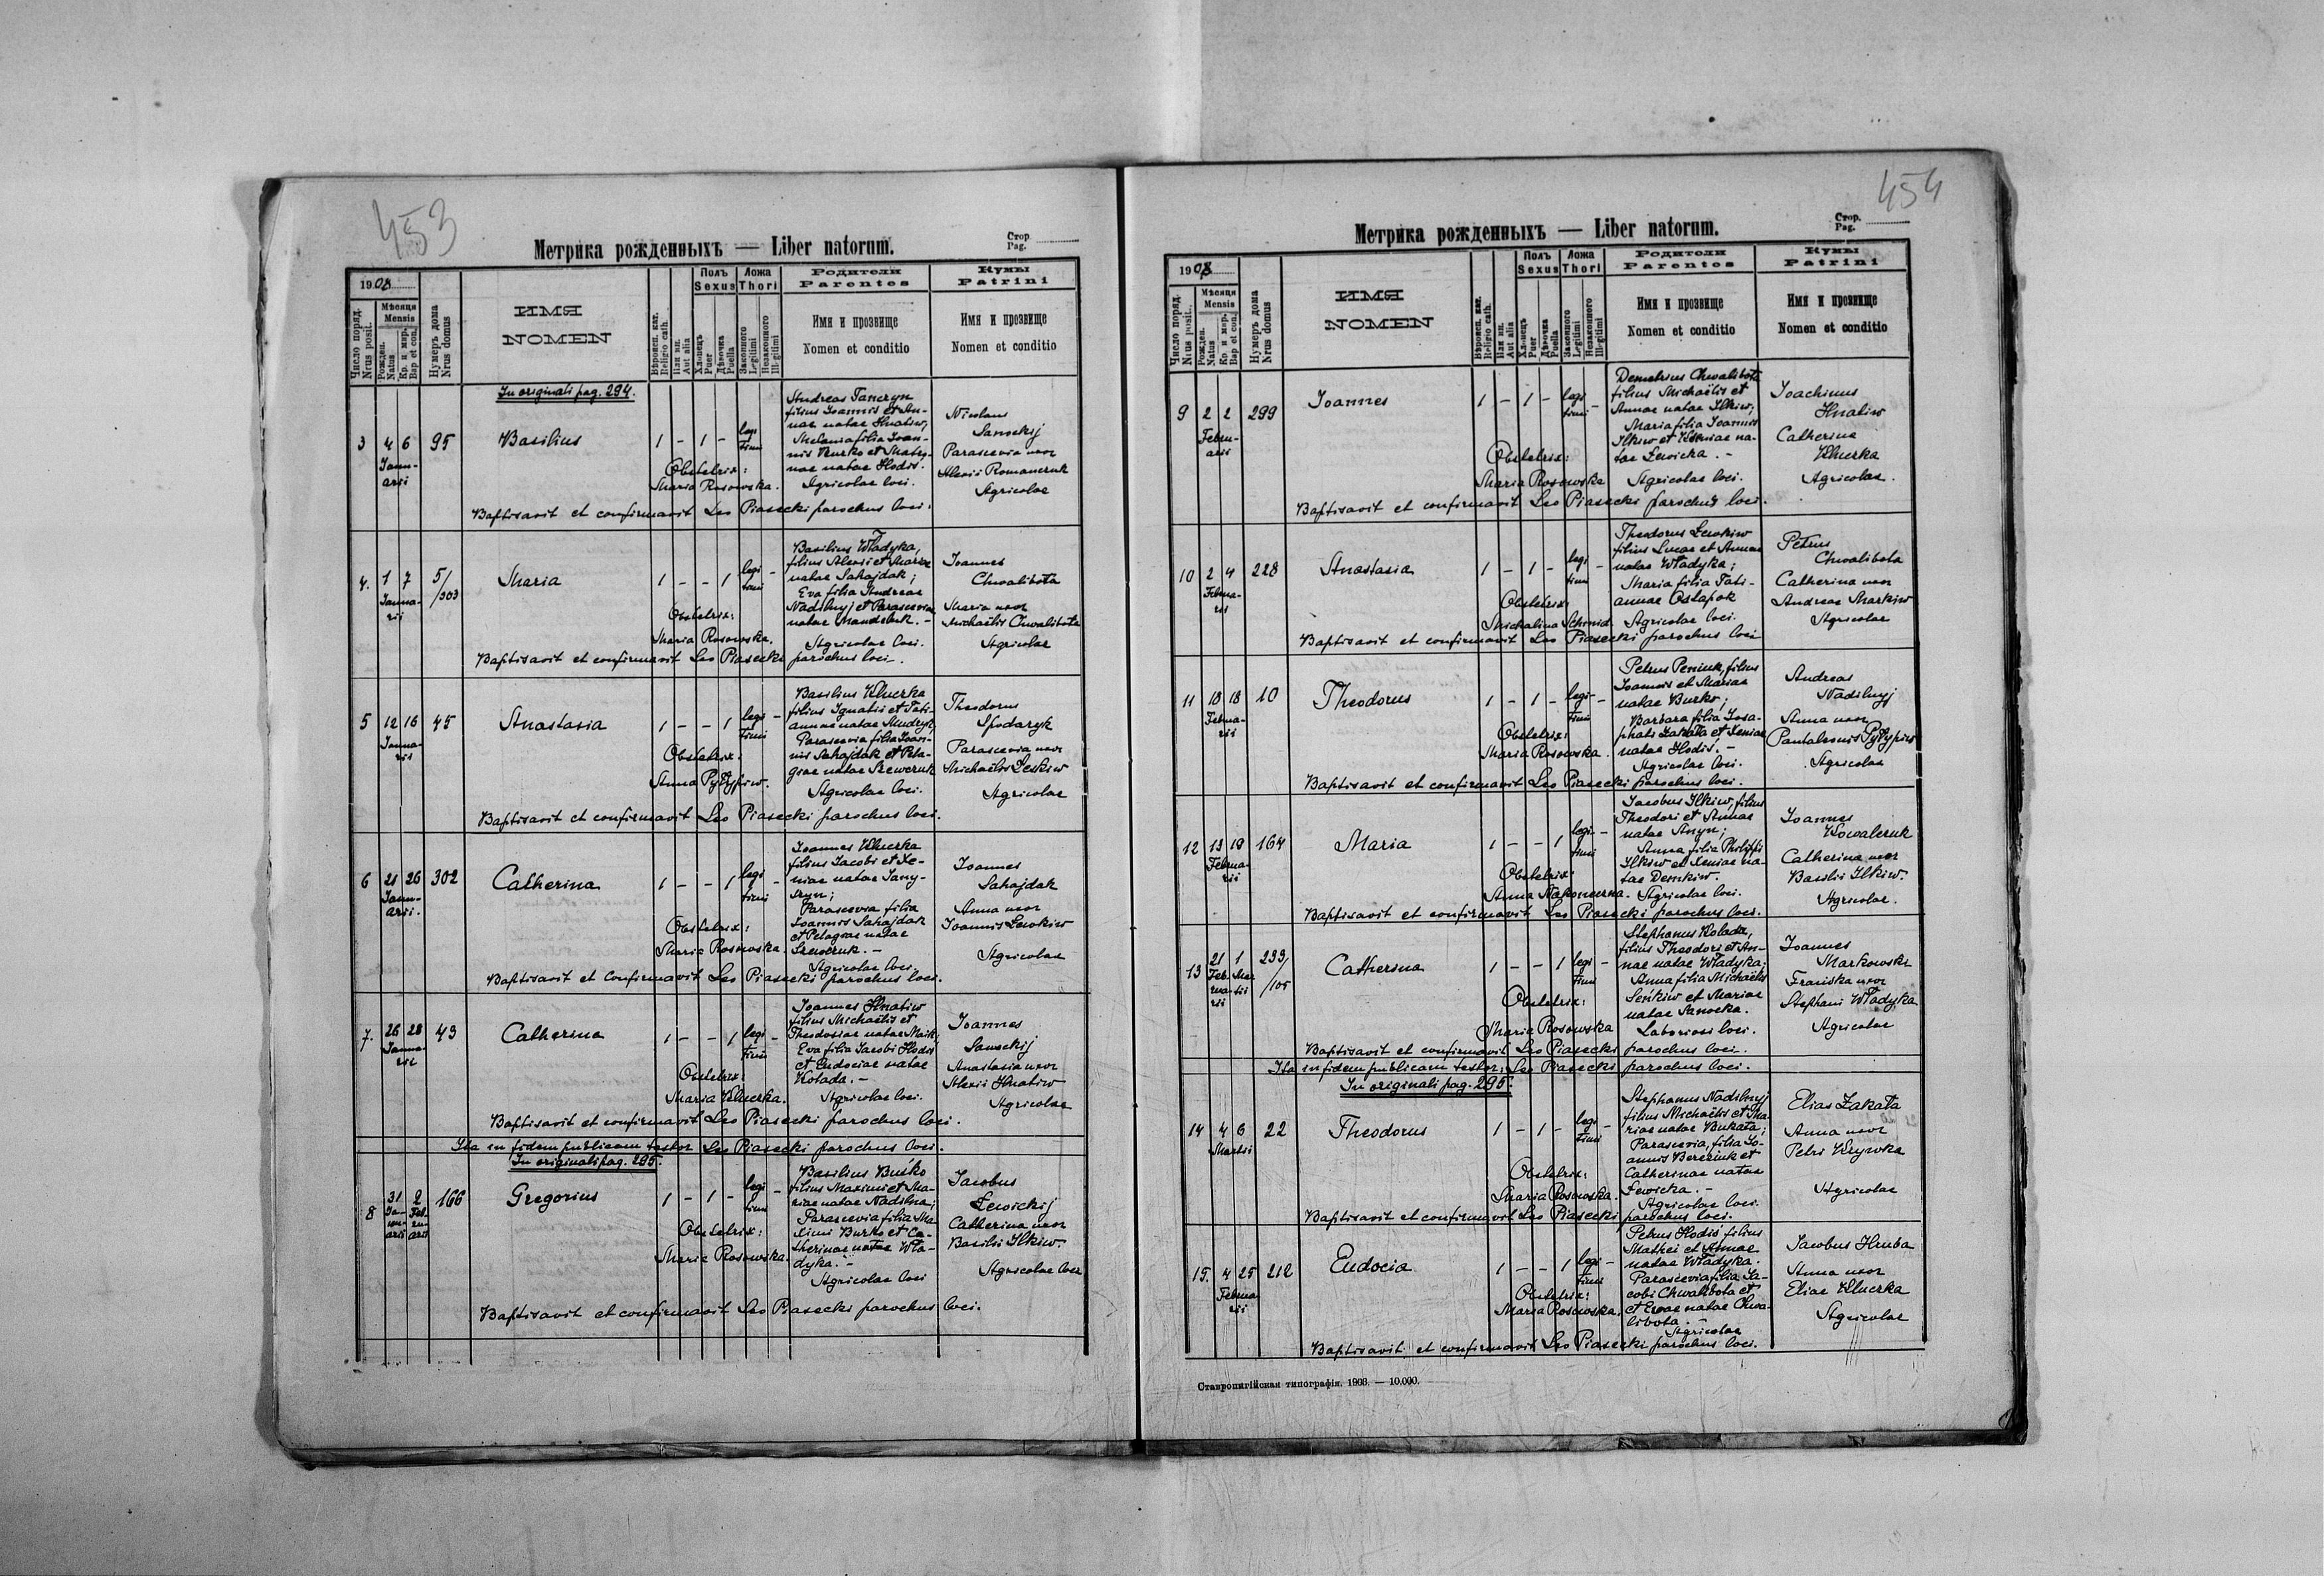 453
Метрика рожденныхъ — Liber natorum.
Стор.
Pag.
1908
Число поряд.
Nrus posit.
Мѣсяця
Mensis
Рожден.
Natus
Кр. и мир.
Bap et con.
Нумеръ дома
Nrus domus
ИМЯ
NOMEN
Вѣроисп. кат.
Religio cath.
Или ин.
Aut alia
Полъ
Sexus
Хлопецъ
Puer
Дѣвочка
Puella
Ложа
Thori
Законного
Legitimi
Незаконного
Illegitimi
Родители
Parentes
Имя и прозвище
Nomen et conditio
Кумы
Patrini
Имя и прозвище
Nomen et conditio
In originali pag. 294.
3 4 6 95 Basilius 1 - 1 - legi
timi
Janu-
arii
Obstetrix:
Maria Rosowska.
Andreas
filius Joannis et An-
nae natae Hnatiw,
Melania filia Joan-
nis Burko et
nae natae Hodis.
Agricolae loci.
Nicolaus
Sanockij
Parascevia uxor
Alexii Romanczuk
Agricolae
Baptisavit et confirmavit Leo Piasecki parochus loci.
4. 1 7 5/303 Maria 1 - - 1 legi
timi -
Janua-
rii
Obstetrix:
Maria Rosowska.
Basilius Władyka,
filius Alexii et Mariae
natae Sahajdak;
Eva filia Andreae
Nadilnyj et Parasceviae
natae .-
Agricolae loci.
Joannes
Chwalibota
Maria uxor
Michaëlis Chwalibota
Agricolae
Baptisavit et confirmavit Leo Piasecki parochus loci.
5 12 16 45 Anastasia 1 - - 1 legi
timi -
Janua-
rii
Obstetrix:
Anna Pyłypiw.
Basilius Klucrka
filius Ignatii et Tati-
annae natae Mudryk,
Parascevia filia Joan-
nis Sahajdak et Pela-
giae natae Szewczuk
Agricolae loci.
Theodorus
Spodaryk
Parascevia uxor
Michaëlis Leskiw
Agricolae
Baptisavit et confirmavit Leo Piasecki parochus loci.
6 21 26 302 Catherina 1 - - 1 legi
timi -
Janu-
arii.
Obstetrix:
Maria Rosowska
Joannes Klucrka
filius Jacobi et Xe-
niae natae
Parascevia filia
Joannis Sahajdak
et Pelagiae natae
Szewczuk. -
Agricolae loci
Joannes
Sahajdak
Anna uxor
Joannis Lewkiw
Agricolae
Baptisavit et confirmavit Leo Piasecki parochus loci.
7. 26 28 43 Catherina 1 - - 1 legi
timi -
Janua-
rii
Obstetrix:
Maria Klucrka.
Joannes Hnatiw
filius Michaëlis et
Theodosiae natae
Eva filia Jacobi Hodis
et Eudociae natae
Kolada. -
Agricolae loci.
Joannes
Sanockij
Anastasia uxor
Alexii Hnatiw
Agricolae
Baptisavit et confirmavit Leo Piasecki parochus loci.
Ita in fidem publicam testor Leo Piasecki parochus loci.
In originali pag. 295.
8 31 2 166 Gregorius 1 - 1 - legi
timi -
Ja-
nu-
arii
Feb-
ru-
arii
Obstetrix:
Maria Rosowska.
Basilius Buśko
filius Maximi et Ma-
riae natae Nadilna;
Parascevia filia Ma-
ximi Burko et Ca-
therinae natae Wła-
dyka. -
Agricolae loci
Jacobus
Lewickij
Catherina uxor
Basilii Ilkiw.
Agricolae loci
Baptisavit et confirmavit Leo Piasecki parochus loci.
454
Метрика рожденныхъ — Liber natorum.
Стор.
Pag.
1908
Число поряд.
Nrus posit.
Мѣсяця
Mensis
Рожден.
Natus
Кр. и мир.
Bap et con.
Нумеръ дома
Nrus domus
ИМЯ
NOMEN
Вѣроисп. кат.
Religio cath.
Или ин.
Aut alia
Полъ
Sexus
Хлопецъ
Puer
Дѣвочка
Puella
Ложа
Thori
Законного
Legitimi
Незаконного
Illegitimi
Родители
Parentes
Имя и прозвище
Nomen et conditio
Кумы
Patrini
Имя и прозвище
Nomen et conditio
9 2 2 299 Joannes 1 - 1 - legi
timi -
Febru-
arii
Obstetrix:
Maria Rosowska
Demetrius Chwalibota
filius Michaëlis et
Annae natae Ilkiw;
Maria filia Joannis
Ilkiw et Xeniae na-
tae Lewicka. -
Agricolae loci.
Joachimus
Hnatiw
Catherina
Klucrka
Agricolae.
Baptisavit et confirmavit Leo Piasecki parochus loci.
10 2 4 228 Anastasia 1 - 1 - legi
timi -
Februa-
rii
Obstetrix:
Michalina Schmid.
Theodorus Lewkiw
filius Lucae et Annae
natae Władyka;
Maria filia Tati-
annae Ostapok
Agricolae loci.
Petrus
Chwalibota
Catherina uxor
Andreae Markiw
Agricolae
Baptisavit et confirmavit Leo Piasecki parochus loci
11 18 18 10 Theodorus 1 - 1 - legi-
timi -
Februa-
rii
Obstetrix:
Maria Rosowska.
Petrus Peniuk, filius
Joannis et Mariae
natae Burko;
Barbara filia Josa-
phati Zakała et Xeniae
natae Hodis. -
Agricolae loci.
Andreas
Nadilnyj
Anna uxor
Pantaleonis Pyłypiw
Agricolae
Baptisavit et confirmavit Leo Piasecki parochus loci.
12 13 19 164 Maria 1 - - 1 legi-
timi -
Februa-
rii
Obstetrix:
Anna
Jacobus Ilkiw, filius
Theodori et Annae
natae
Anna filia Philippi
Ilkiw et Xeniae na-
tae Demkiw.
Agricolae loci.
Joannes
Kowalczuk
Catherina uxor
Basilii Ilkiw.
Agricolae.
Baptisavit et confirmavit Leo Piasecki parochus loci.
13 21 1 233/105 Catherina 1 - - 1 legi
timi -
Feb-
rua-
rii
Mar-
tii
Obstetrix:
Maria Rosowska
Stephanus Kolada,
filius Theodori et An-
nae natae Władyka;
Anna filia Michaëlis
Seńkiw et Mariae
natae Sanocka.
Laboriosi loci.
Joannes
Markowski
Franiska uxor
Stephani Władyka
Agricolae
Baptisavit et confirmavit Leo Piasecki parochus loci.
Ita in fidem publicam testor: Leo Piasecki parochus loci.
In originali pag. 295.
14 4 6 22 Theodorus 1 - 1 - legi-
timi -
Martii
Obstetrix:
Maria Rosowska.
Stephanus Nadilnyj
filius Michaëlis et Ma-
riae natae Bukata;
Parascevia, filia Jo-
annis Bereziuk et
Catherinae natae
Lewicka. -
Agricolae loci.
Elias Zakała
Anna uxor
Petri Krywka
Agricolae
Baptisavit et confirmavit Leo Piasecki parochus loci.
15. 4 25 212 Eudocia 1 - - 1 legi-
timi -
Februa-
rii
Obstetrix:
Maria Rosowska.
Petrus Hodis filius
Mathei et Annae
natae Władyka.
Parascevia filia Ja-
cobi Chwalibota et
et Evae natae Chwa-
libota. -
Agricolae
Jacobus Hruba
Anna uxor
Eliae Klucrka
Agricolae
Baptisavit et confirmavit Leo Piasecki parochus loci.
Ставропигійская типографія. 1903. — 10,000.